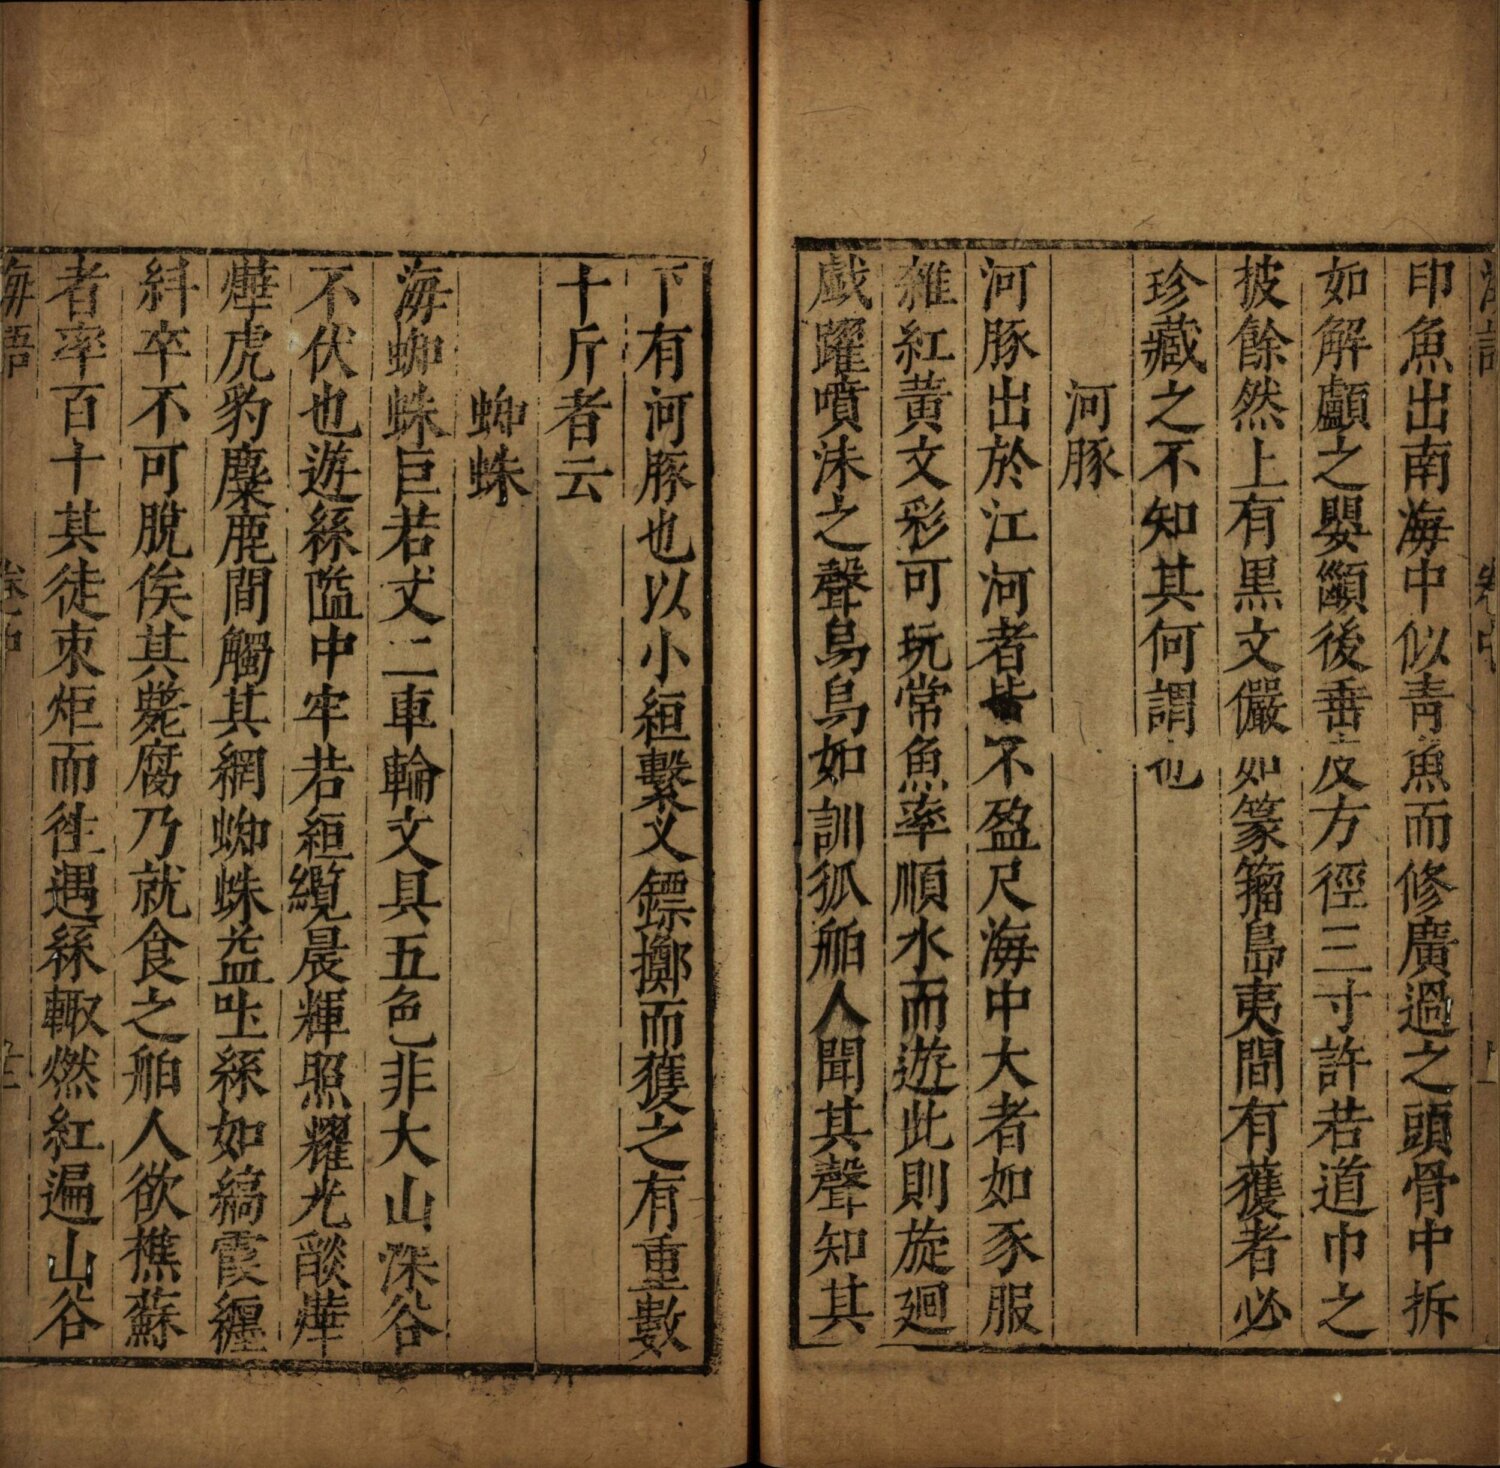 印魚出南海中似青魚而修廣過之頭骨中拆
如解顱之嬰顖後垂皮方徑三寸許若道巾之
披餘然上有黑文儼如篆籀島夷間有獲者必
珍藏之不知其何謂也
河豚
河豚出於江河者皆不盈尺海中大者如豕服
雜紅黃文彩可玩常魚率順水而遊此則旋迴
戯躍噴沬之聲烏烏如訓狐舶人聞其聲知其
下有河豚也以小絙繫义鏢擲而獲之有重數
十斤者云
蜘蛛
海蜘蛛巨若丈二車輪文具五色非大山深谷
不伏也遊絲䧢中牢若絙纜晨輝照耀光燄燁
燁虎豹麋鹿間觸其網蜘蛛益吐絲如縞霞纏
糾卒不可脫俟其斃腐乃就食之舶人欲樵蘇
者率百十其徒朿炬而徃遇絲輙燃紅遍山谷
海語 卷中